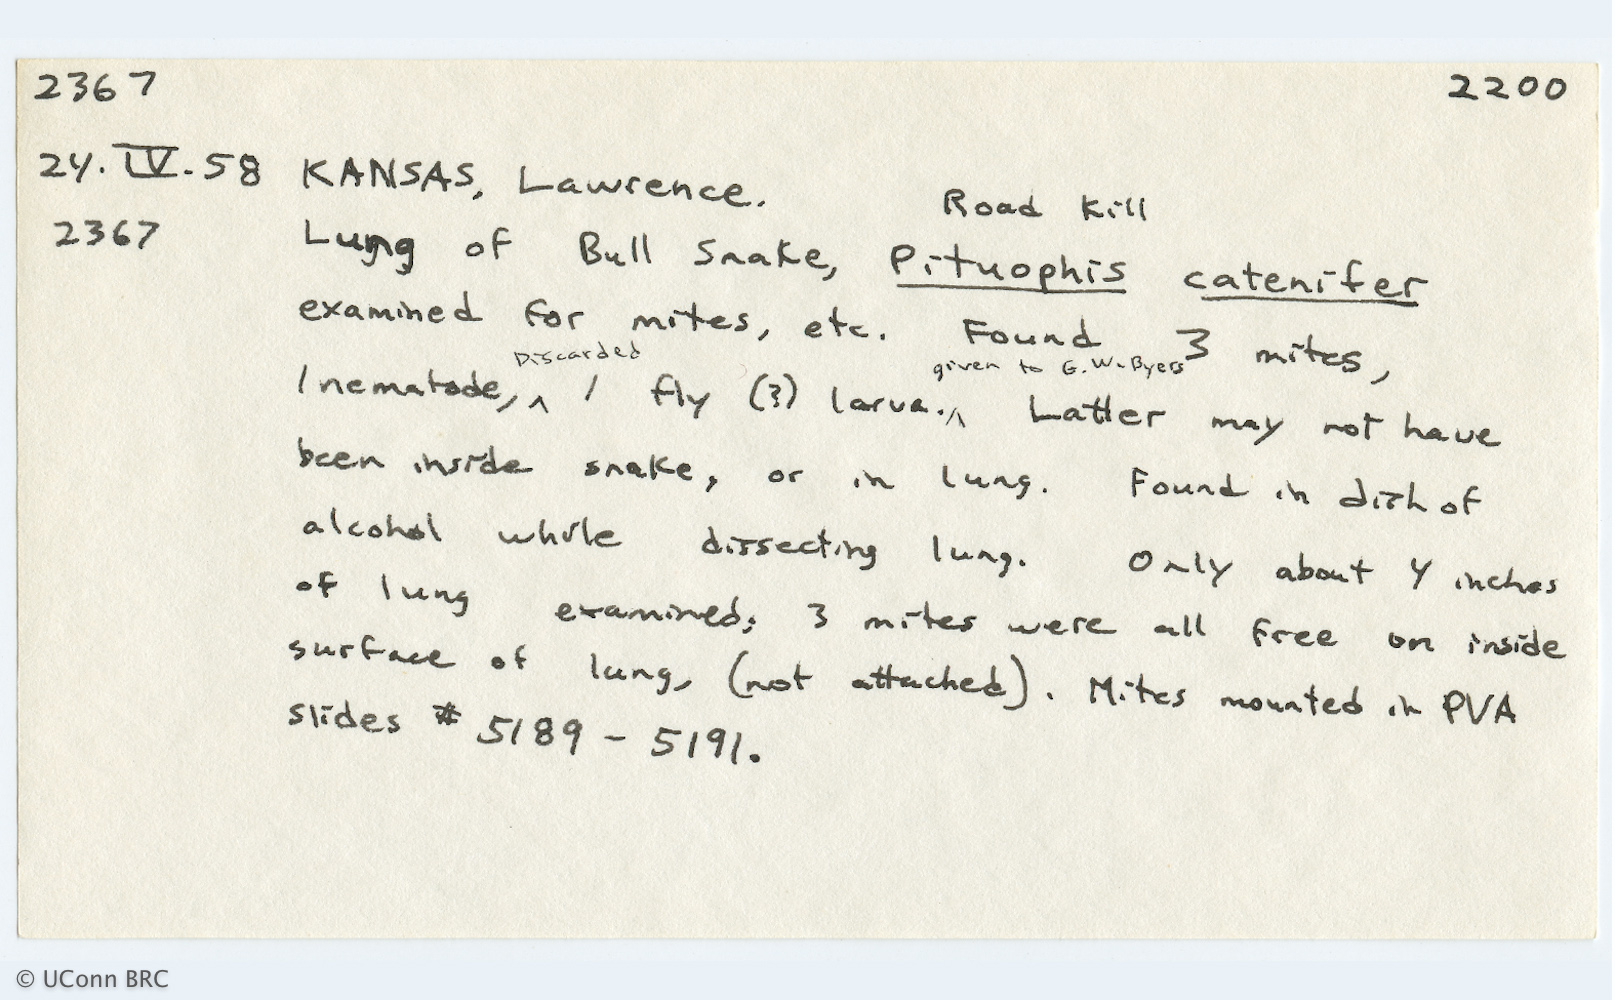 2367 2200
24.IV.58 KANSAS, Lawrence.
Road Kill
2367 Lung of Bull Snake, Pituophis catenifer
examined for mites, etc. Found 3 mites,
Discarded given to G.W. Byers
1 nematode,^ 1 fly (?) larva.^ Latter may not have
been inside snake, or in lung. Found in dish of
alcohol while dissecting lung. Only about 4 inches
of lung examined; 3 mites were all free on inside
surface of lung, (not attached). Mites mounted in PVA
slides # 5189 - 5191.
© UConn BRC